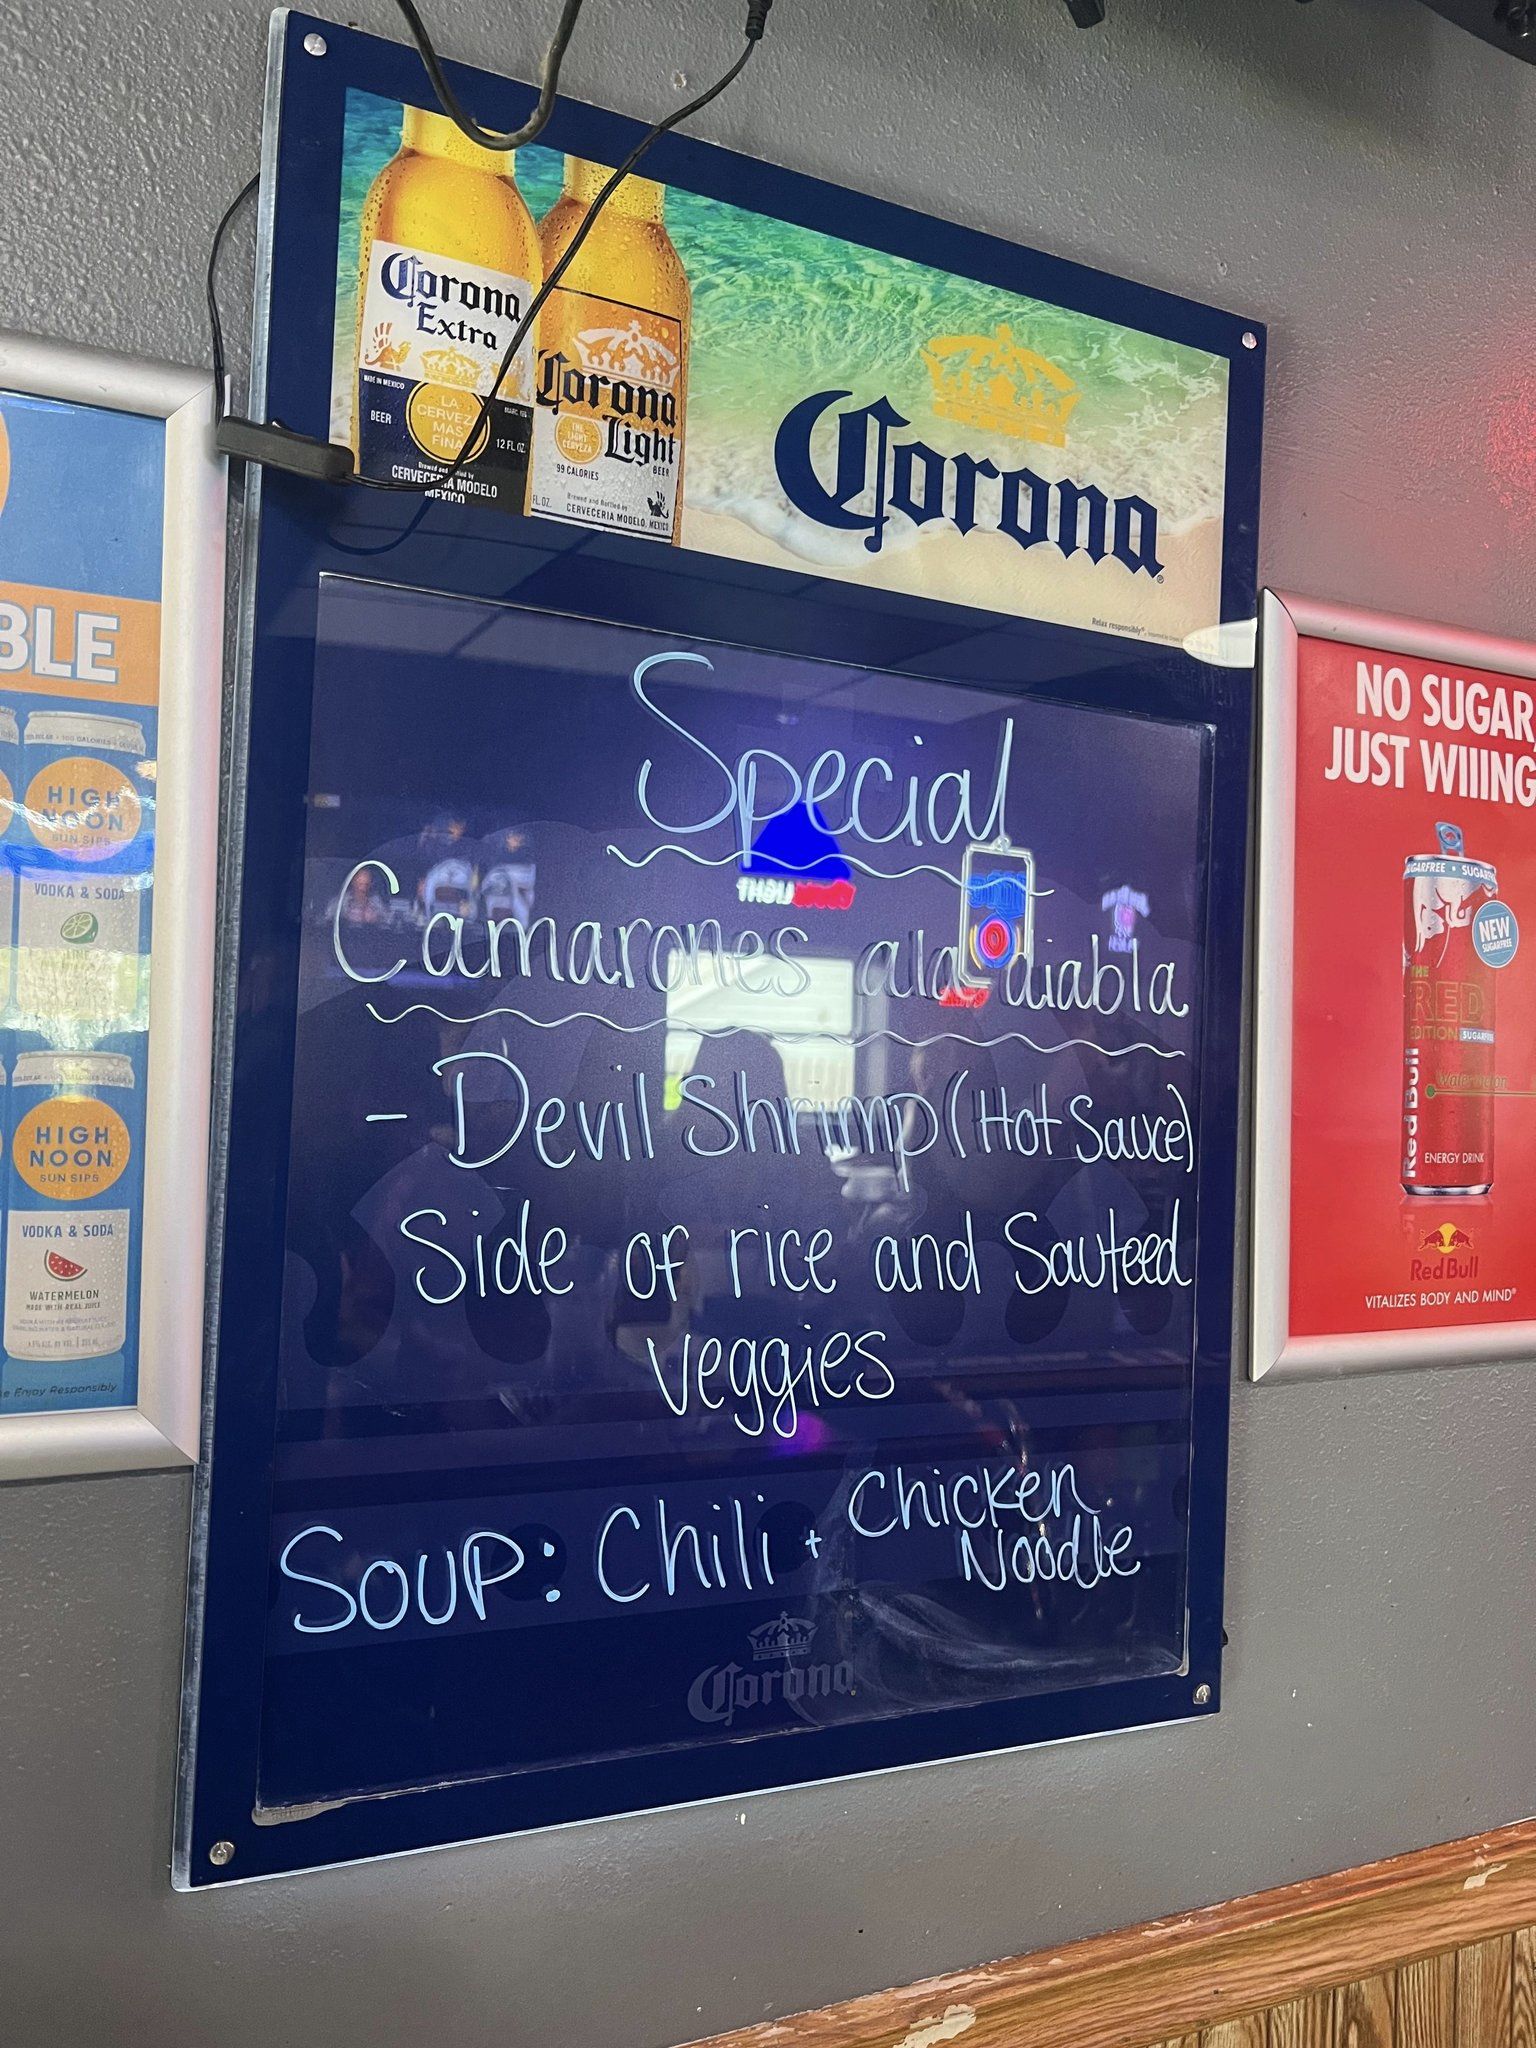 Corona
Extra
MADE IN MEXICO
BEER
LA
CERVEZA
MAS
FINA
12 FL. OZ.
Brewed and Bottled by
CERVECERIA MODELO
MEXICO
Corona
Light
BEER
THE
LIGHT
CERVEZA
99 CALORIES
FL. OZ.
Brewed and Bottled by
CERVECERIA MODELO, MEXICO
Corona
Relax responsibly®
Special
Camarones ala diabla
- Devil Shrimp (Hot Sauce)
Side of rice and Sauteed
veggies
Soup: Chili + Chicken
Noodle
Corona
BLE
HIGH
NOON
SUN SIPS
VODKA & SODA
LIME
HIGH
NOON
SUN SIPS
VODKA & SODA
WATERMELON
MADE WITH REAL JUICE
Enjoy Responsibly
NO SUGAR,
JUST WIIING
SUGARFREE
NEW
SUGARFREE
THE
RED
EDITION SUGARFREE
watermelon
Red Bull
ENERGY DRINK
Red Bull
VITALIZES BODY AND MIND®